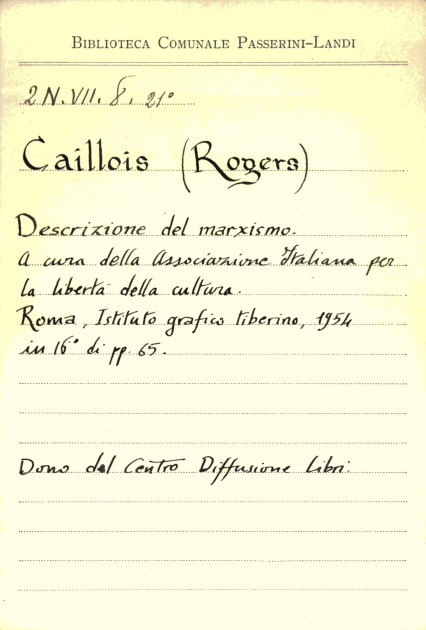 BIBLIOTECA COMUNALE PASSERINI-LANDI
2 N. VII. 8. 21°
Caillois (Rogers)
Descrizione del marxismo.
A cura della Associazione Italiana per
la libertà della cultura.
Roma, Istituto grafico tiberino, 1954
in 16° di pp. 65.
Dono del Centro Diffusione Libri.